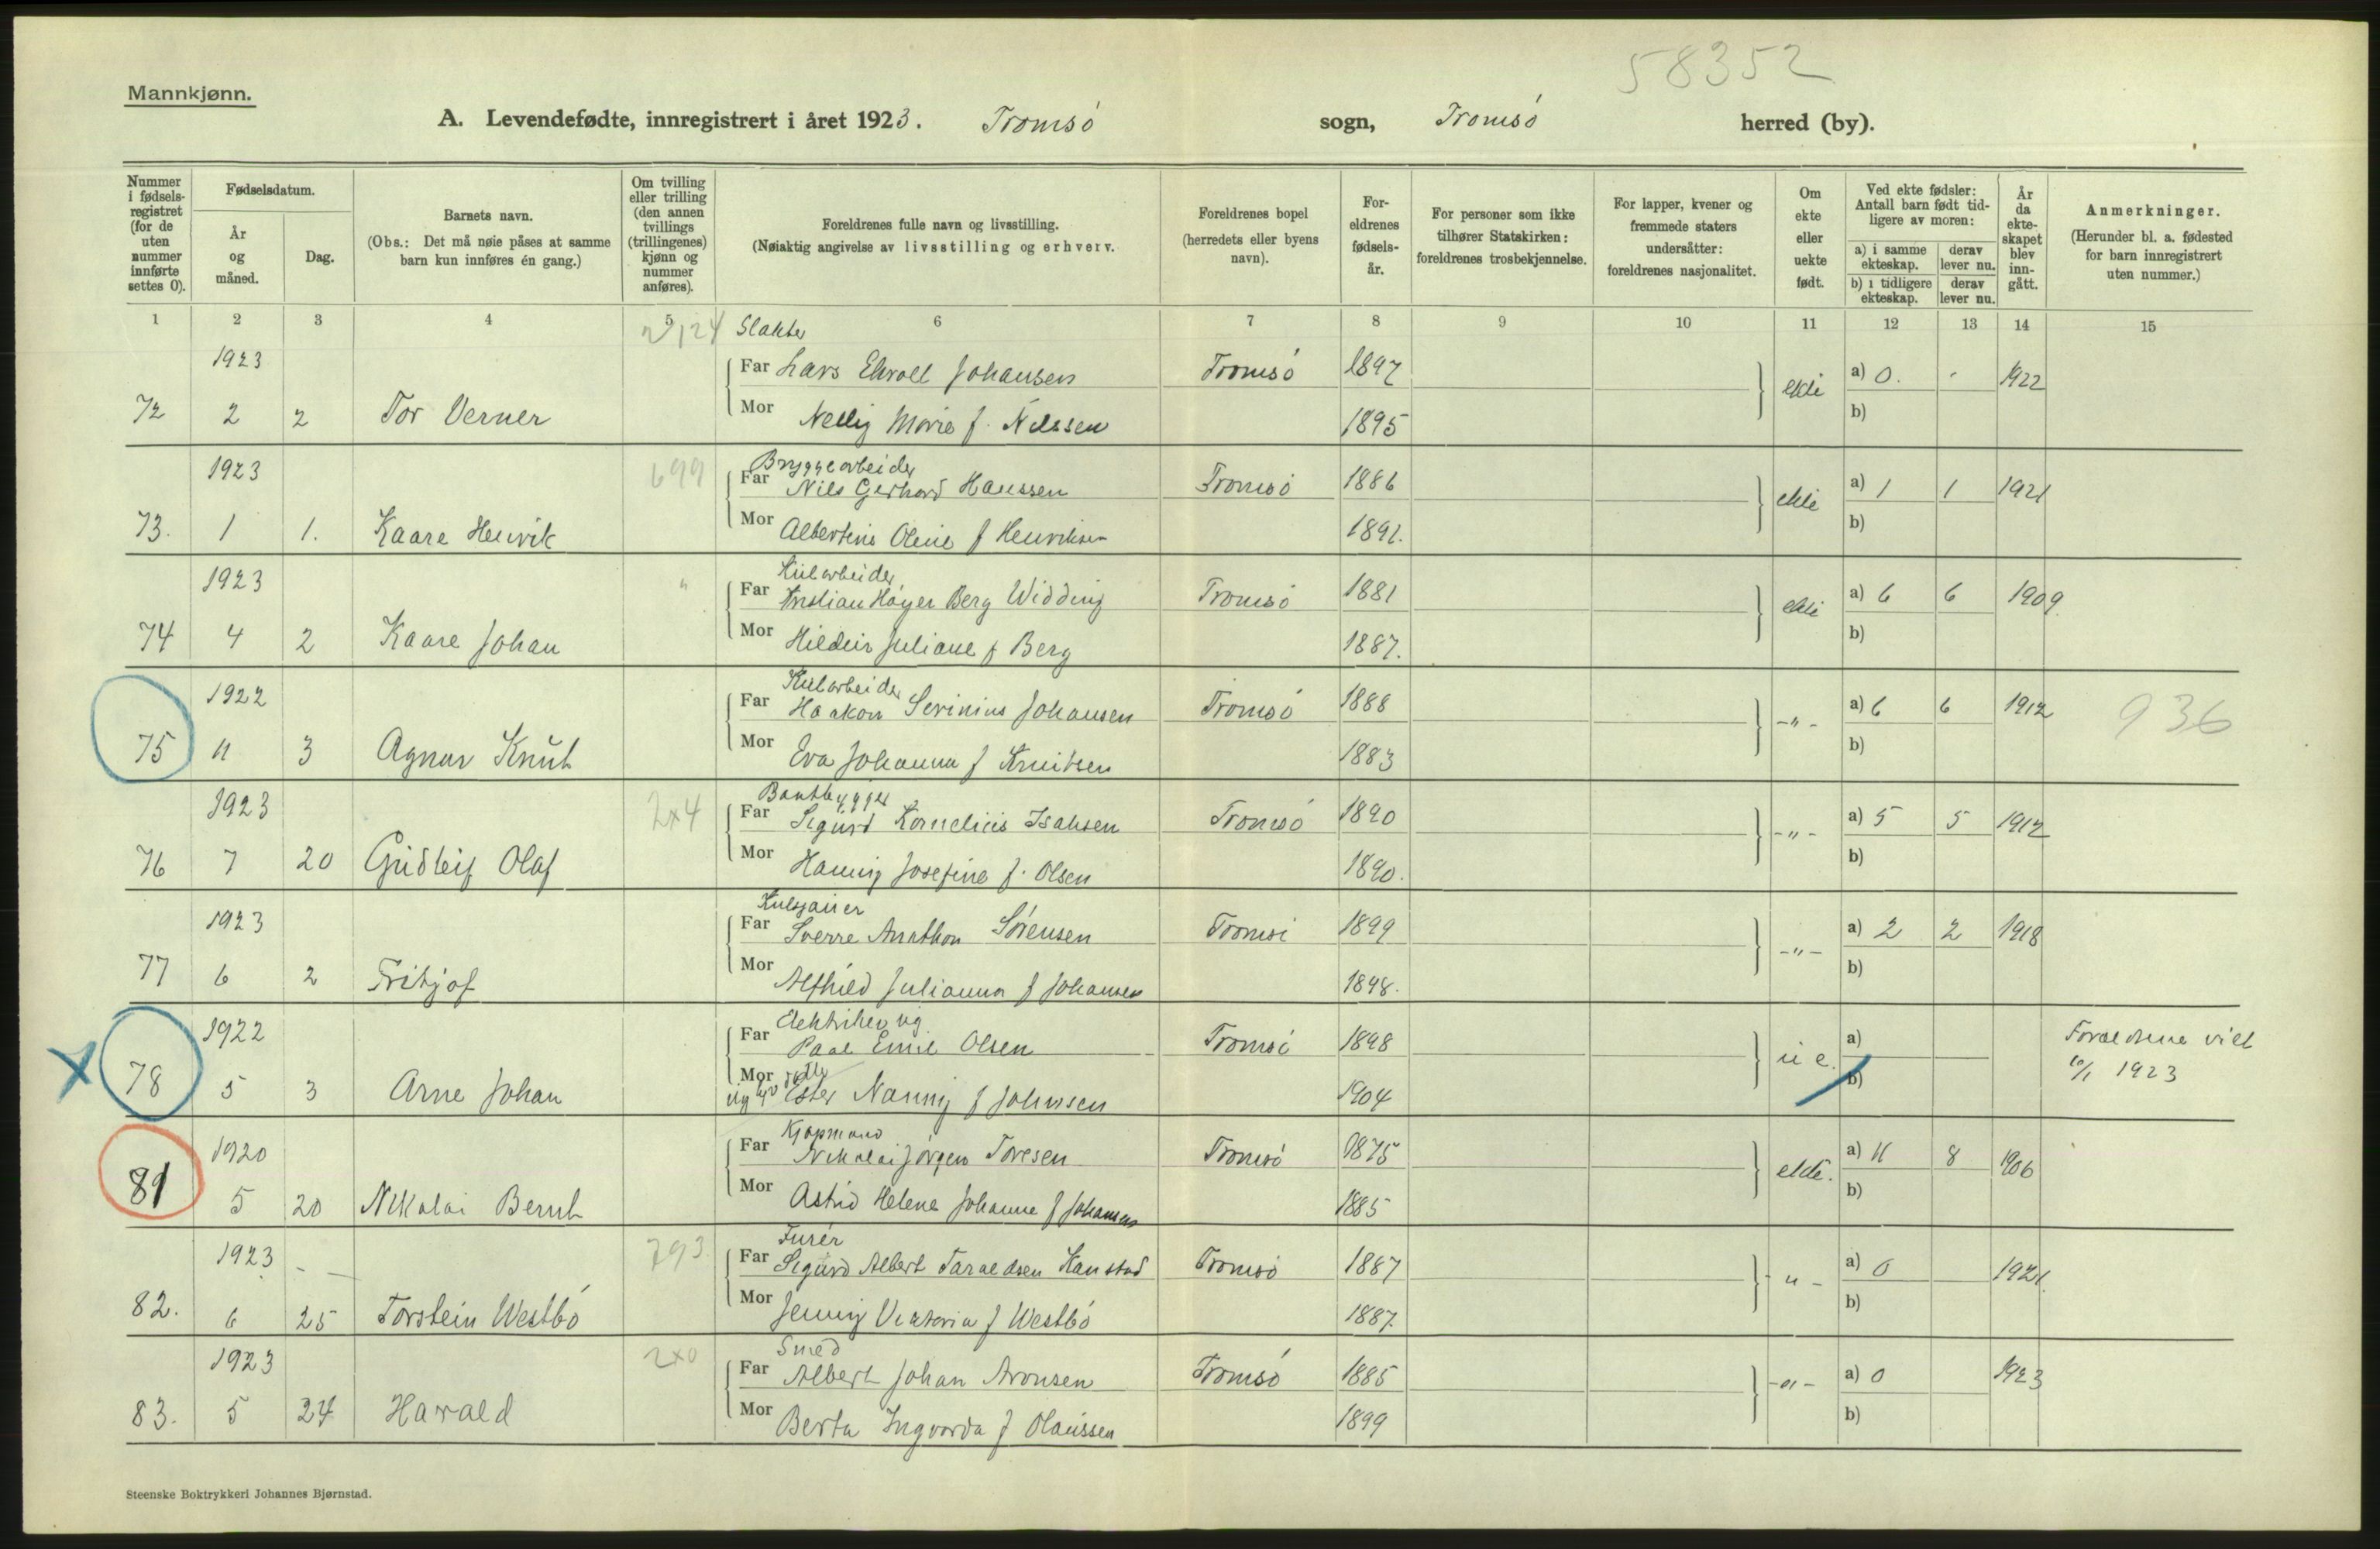 58352
Mannkjønn.
A. Levendefødte, innregistrert i året 1923. Tromsö sogn, Tromsö herred (by).
Nummer i fødselsregistret (for de uten nummer innførte settes 0).
Fødselsdatum.
År og måned.
Dag.
Barnets navn.
(Obs.: Det må nøie påses at samme barn kun innføres én gang.)
Om tvilling eller trilling (den annen tvillings (trillingenes) kjønn og nummer anføres).
Foreldrenes fulle navn og livsstilling.
(Nøiaktig angivelse av livsstilling og erhverv.
Foreldrenes bopel (herredets eller byens navn).
Foreldrenes fødselsår.
For personer som ikke tilhører Statskirken: foreldrenes trosbekjennelse.
For lapper, kvener og fremmede staters undersåtter: foreldrenes nasjonalitet.
Om ekte eller uekte født.
Ved ekte fødsler: Antall barn født tidligere av moren:
a) i samme ekteskap. derav lever nu.
b) i tidligere ekteskap. derav lever nu.
År da ekteskapet blev inngått.
Anmerkninger.
(Herunder bl. a. fødested for barn innregistrert uten nummer.)
1 2 3 4 5 6 7 8 9 10 11 12 13 14 15
Slakter
1923 Far Lars Johansen Tromsö 1897 ekte a) 0. - 1922
72 2 2 Tor Verner Mor Nelly Marie f. Nilssen 1895 b)
699 Bryggearbeider
1923 Far Nils Gerhard Hanssen Tromsö 1886 ekte a) 1 1 1921
73. 1 1. Kaare Henrik Mor Albertine Oline f Henriksen 1891. b)
Kularbeider
1923 " Far Kristian Höyer Berg Widding Tromsö 1881 ekte a) 6 6 1909.
74 4 2 Kaare Johan Mor Juliane f Berg 1887. b)
Kularbeider
1922 Far Haakon Serinius Johansen Tromsö 1888 -"- a) 6 6 1912 936
75 11 3 Agnar Knut Mor Eva Johanna f Knutsen 1883 b)
2x4 Baatbygger
1923 Far Sigurd Kornelius Isaksen Tromsö 1890 -"- a) 5 5 1912
76 7 20 Gudleif Olaf Mor Hanny Josefine f. Olsen 1890. b)
Kulsjauer
1923 Far Sverre Anathon Sörensen Tromsö 1899 -"- a) 2 2 1918
77 6 2 Fritjof Mor Alfhild Julianna f Johansen 1898. b)
Elektriker, ug.
1922 Far Paal Emil Olsen Tromsö 1898 u e. a) Foreldrene viet
78 5 3 Arne Johan Mor Ester Nanny f Johnsen 1904 b) 20/1 1923
Kjøpmand
1920 Far Nikolai Jörgen Toresen Tromsö 1875 ekte. a) 11 8 1906
81 5 20 Nikolai Bernt Mor Astrid Helene Johanne f Johansen 1885 b)
793 Furér
1923 Far Sigurd Albert Taraldsen Kanstad Tromsö 1887 -"- a) 0 1921
82. 6 25 Torstein Westbö Mor Jenny Viktoria f Westbö 1887. b)
2x0 Smed
1923 Far Albert Johan Aronsen Tromsö 1885 -"- a) 0 1923
83. 5 24 Harald Mor Berta Ingvarda f Olaussen 1899 b)
Steenske Boktrykkeri Johannes Bjørnstad.